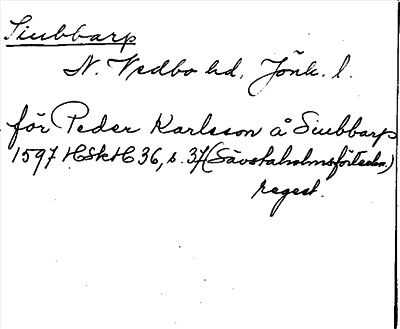 Siubbarp
N. Vedbo hd. Jönk. l.
för Peder Karlsson å Siubbarp
1597 HSkH 36, s. 37 (Sävstaholmsförteckn.)
regest.